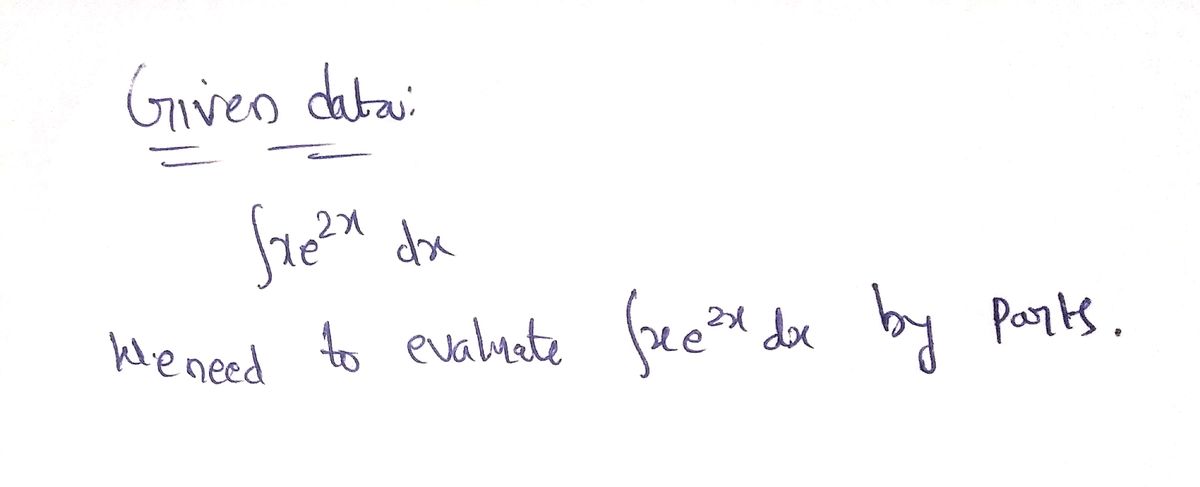 Given data:
∫xe^{2x} dx
We need to evaluate ∫xe^{2x} dx by parts.